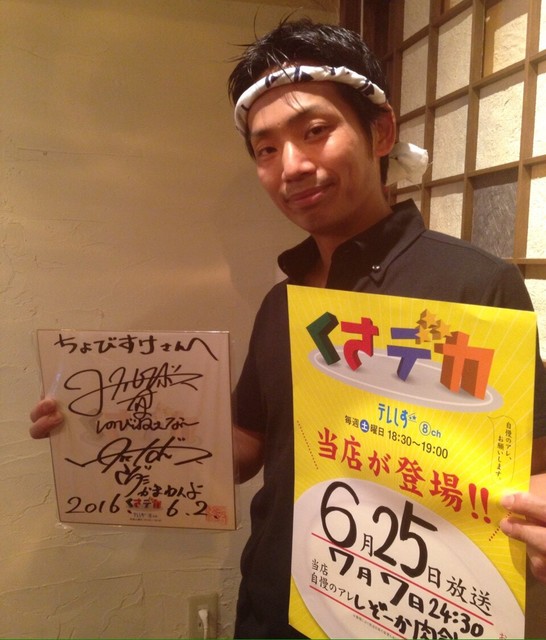 ちょびすけさんへ
しのびねぇなー
かまわんよ
2016 くさデカ 6.2
くさデカ
テレしず 8ch
毎週土曜日 18:30~19:00
自慢のアレ、
お願いします。
当店が登場!!
6月25日放送
7月7日24:30
当店
自慢のアレ しぞーか肉会